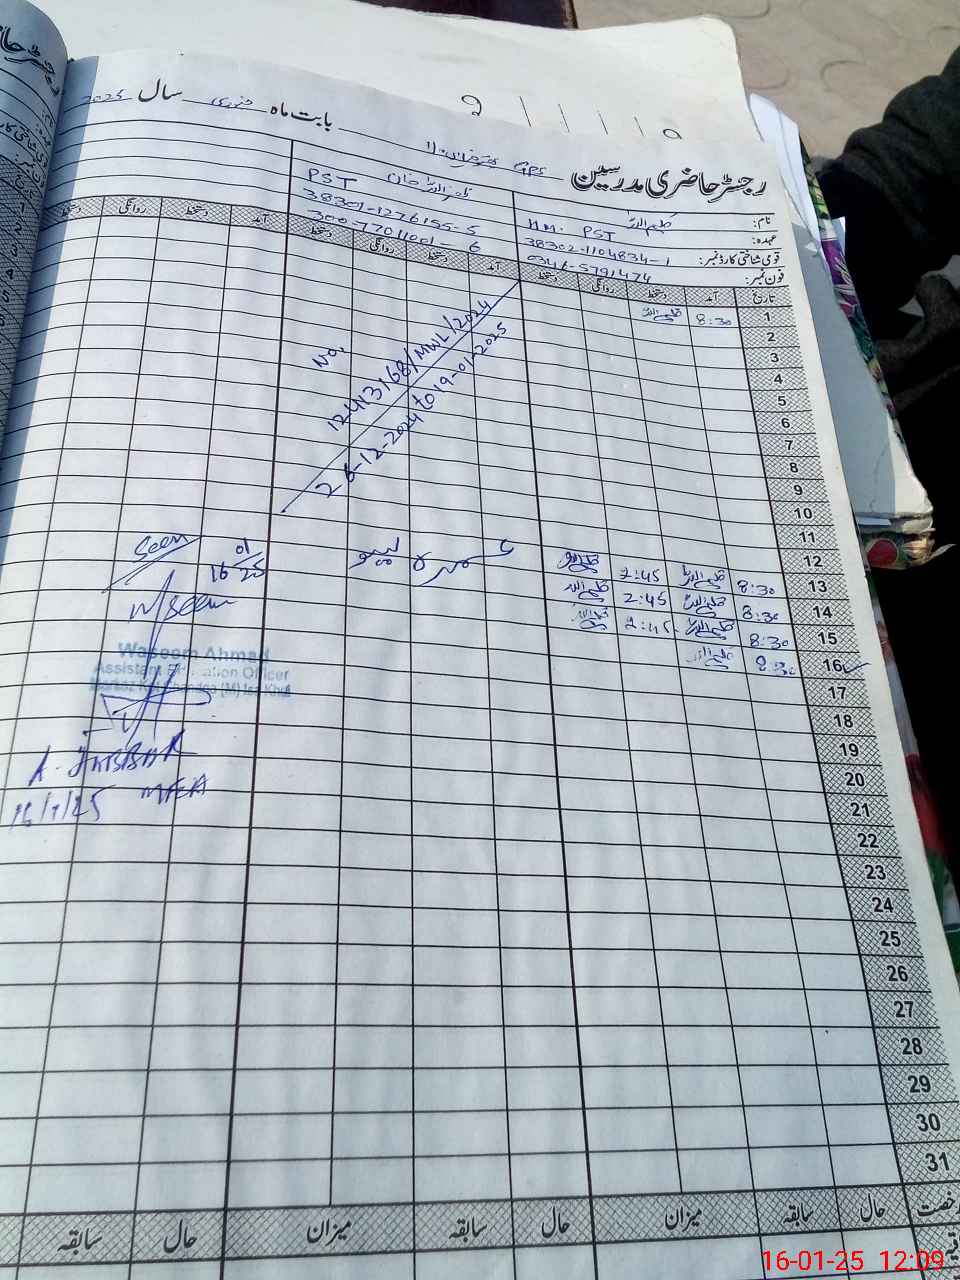 رجسٹر حاضری مدرسین GPS بابت ماہ جنوری سال 2025
نام: کلیم اللہ
عہدہ: H.M. PST
قومی شناختی کارڈ نمبر: 38302-1104834-1
فون نمبر: 0346-5791474
خان
PST
38301-1276155-5
300-7701001-6
تاریخ آمد دستخط روانگی دستخط آمد دستخط روانگی دستخط آمد دستخط روانگی دستخط
1 8:30 کلیم اللہ
2
3
4
5
6
7
8
9
10
11
12
13 8:30 کلیم اللہ 2:45 کلیم اللہ
14 8:30 کلیم اللہ 2:45 کلیم اللہ
15 8:30 کلیم اللہ 2:45 کلیم اللہ
16 8:30 کلیم اللہ
17
18
19
20
21
22
23
24
25
26
27
28
29
30
31
No.
12413168/MWL/2024
26-12-2024 to 19-01-2025
عمرہ لیو
Seen
16/01/25
Seen
Waseem Ahmad
Assistant Education Officer
A. JABBAR
16/1/25 MEA
رخصت حال سابقہ میزان حال سابقہ میزان حال سابقہ
16-01-25 12:09